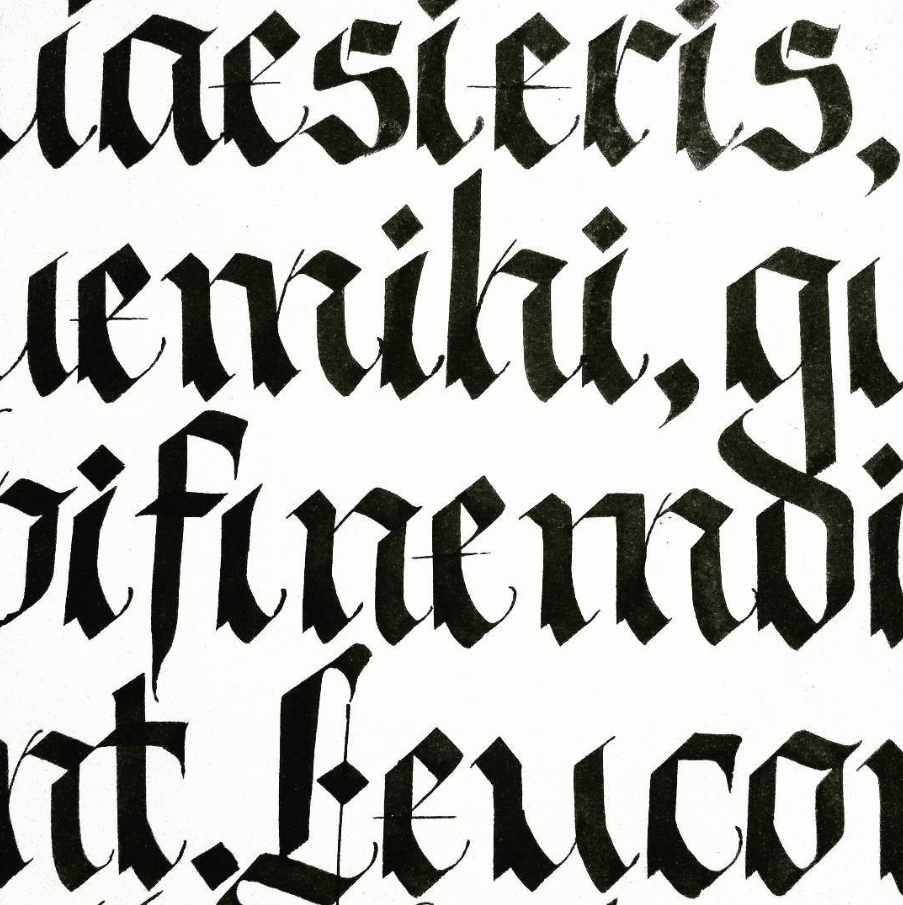 uaesieris,
uemihi, qu
bi finem di
nt. Leucon